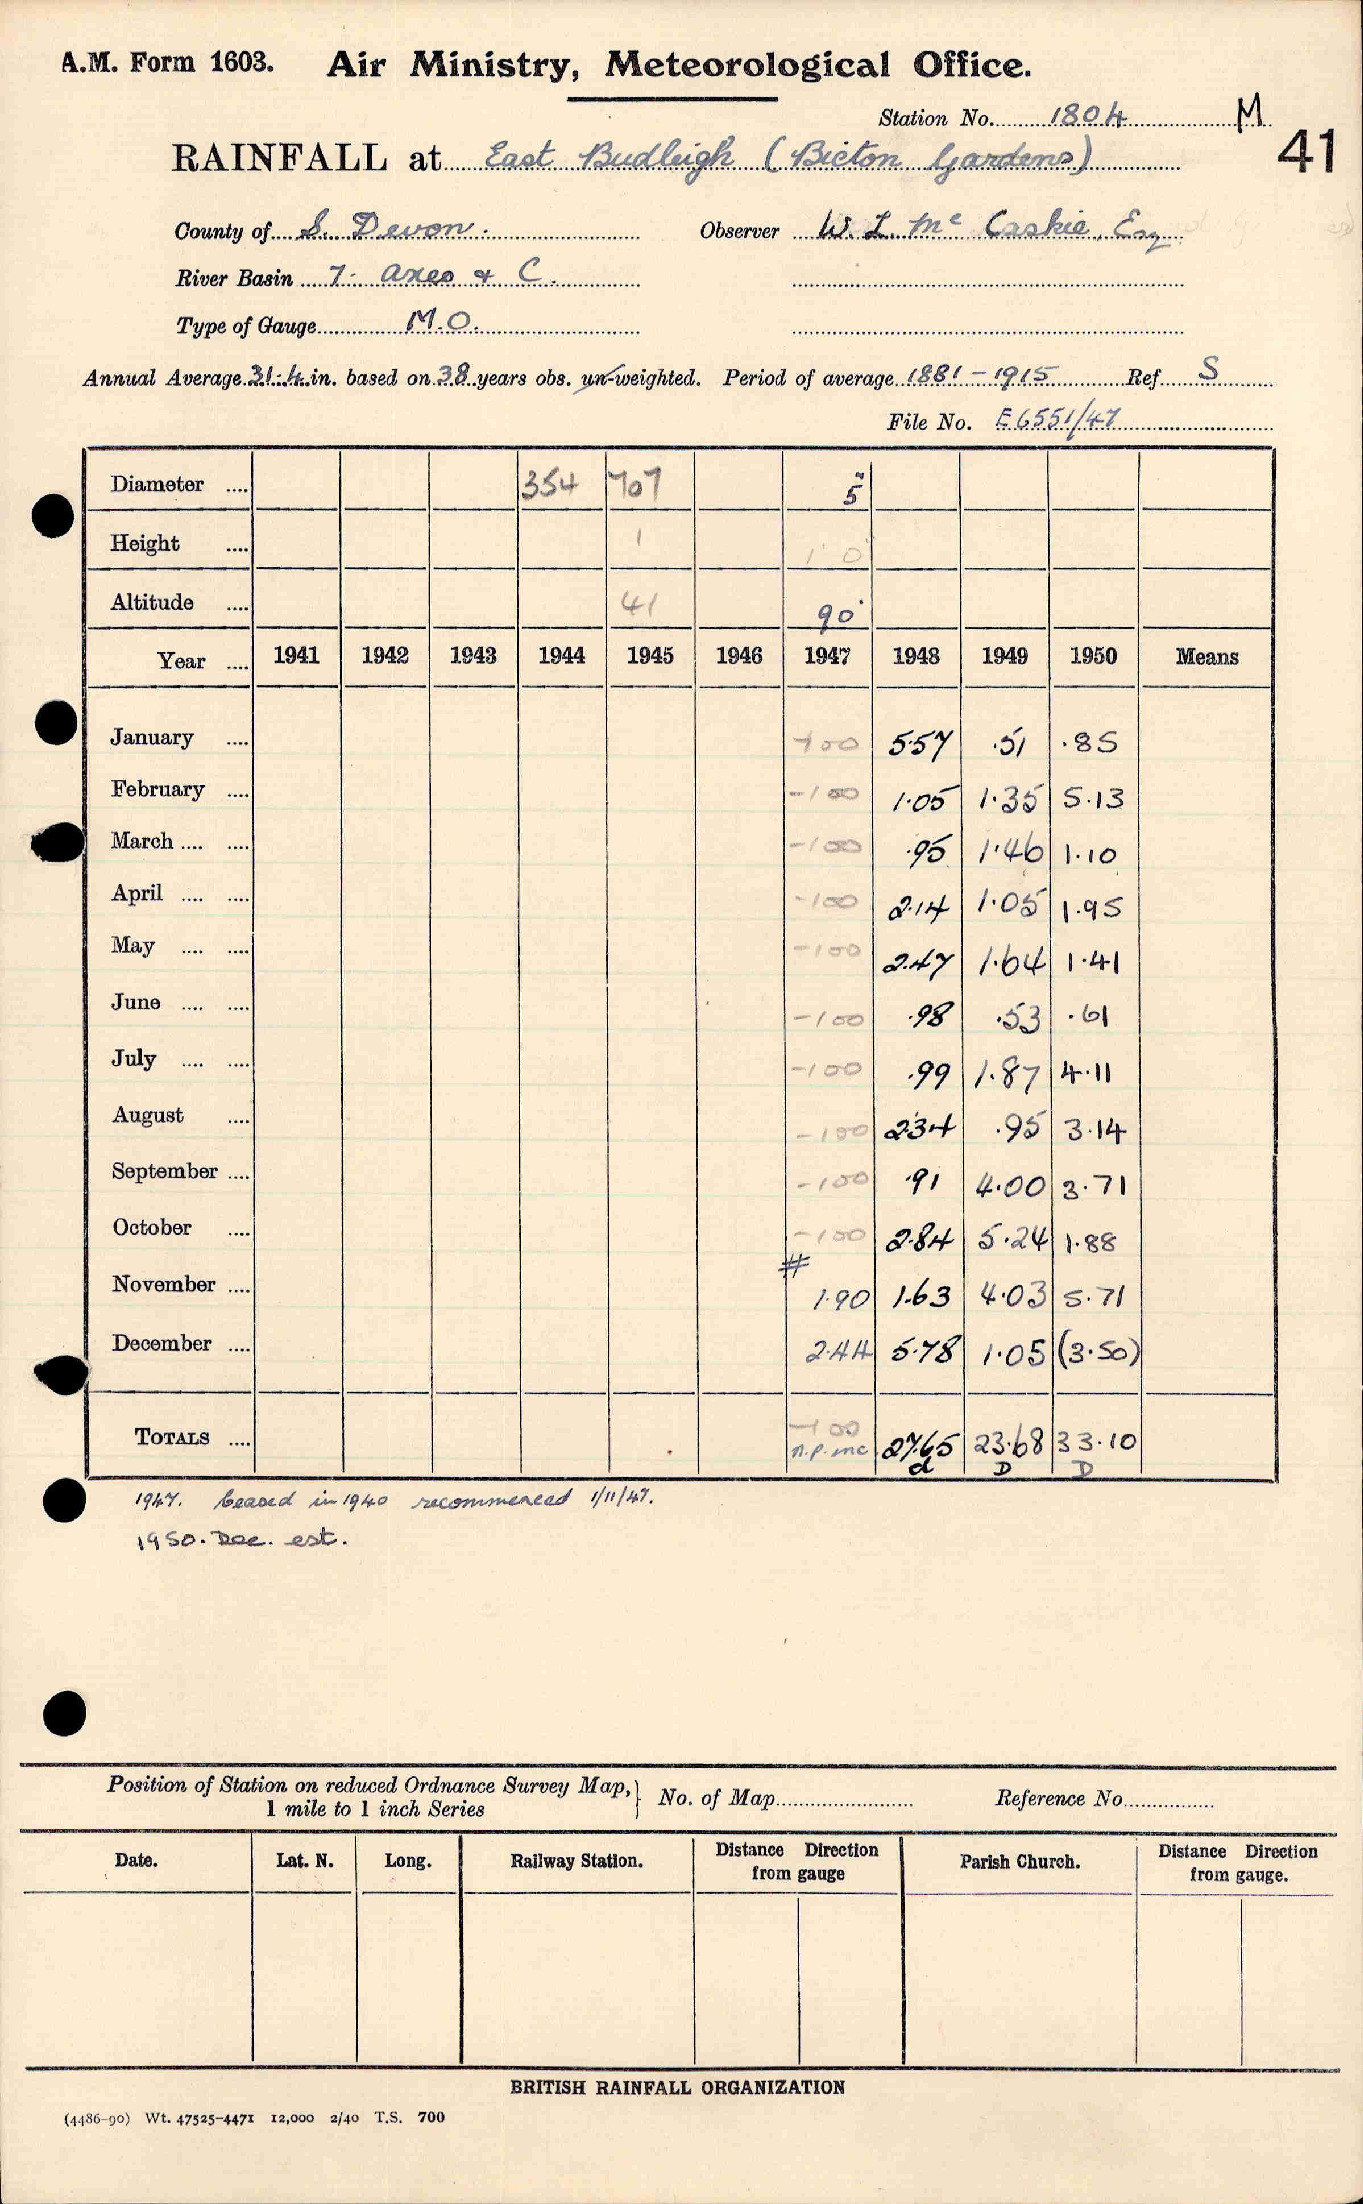 A.M. Form 1603. Air Ministry, Meteorological Office.
Station No. 1804 M
41
RAINFALL at East Budleigh (Bicton Gardens)
County of S. Devon. Observer W. L. Mc Caskie, Esq
River Basin 7. Axes & C.
Type of Gauge M.O.
Annual Average 31.4 in. based on 38 years obs. un-weighted. Period of average 1881-1915 Ref S
File No. E6551/47
Diameter .... 354 707 5"
Height .... 1 1' 0"
Altitude .... 41 90'
Year .... 1941 1942 1943 1944 1945 1946 1947 1948 1949 1950 Means
January .... -100 5.57 .51 .85
February .... -100 1.05 1.35 5.13
March .... .... -100 .95 1.46 1.10
April .... .... -100 2.14 1.05 1.95
May .... .... -100 2.47 1.64 1.41
June .... .... -100 .98 .53 .61
July .... .... -100 .99 1.87 4.11
August .... -100 2.34 .95 3.14
September .... -100 .91 4.00 3.71
October .... -100 2.84 5.24 1.88
#
November .... 1.90 1.63 4.03 5.71
December .... 2.44 5.78 1.05 (3.50)
TOTALS .... -100 27.65 23.68 33.10
n.p. inc d D D
1947. Ceased in 1940 recommenced 1/11/47.
1950. Dec. est.
Position of Station on reduced Ordnance Survey Map, } No. of Map Reference No
1 mile to 1 inch Series
Date. Lat. N. Long. Railway Station. Distance Direction from gauge Parish Church. Distance Direction from gauge.
BRITISH RAINFALL ORGANIZATION
(4486-90) Wt. 47525-4471 12,000 2/40 T.S. 700